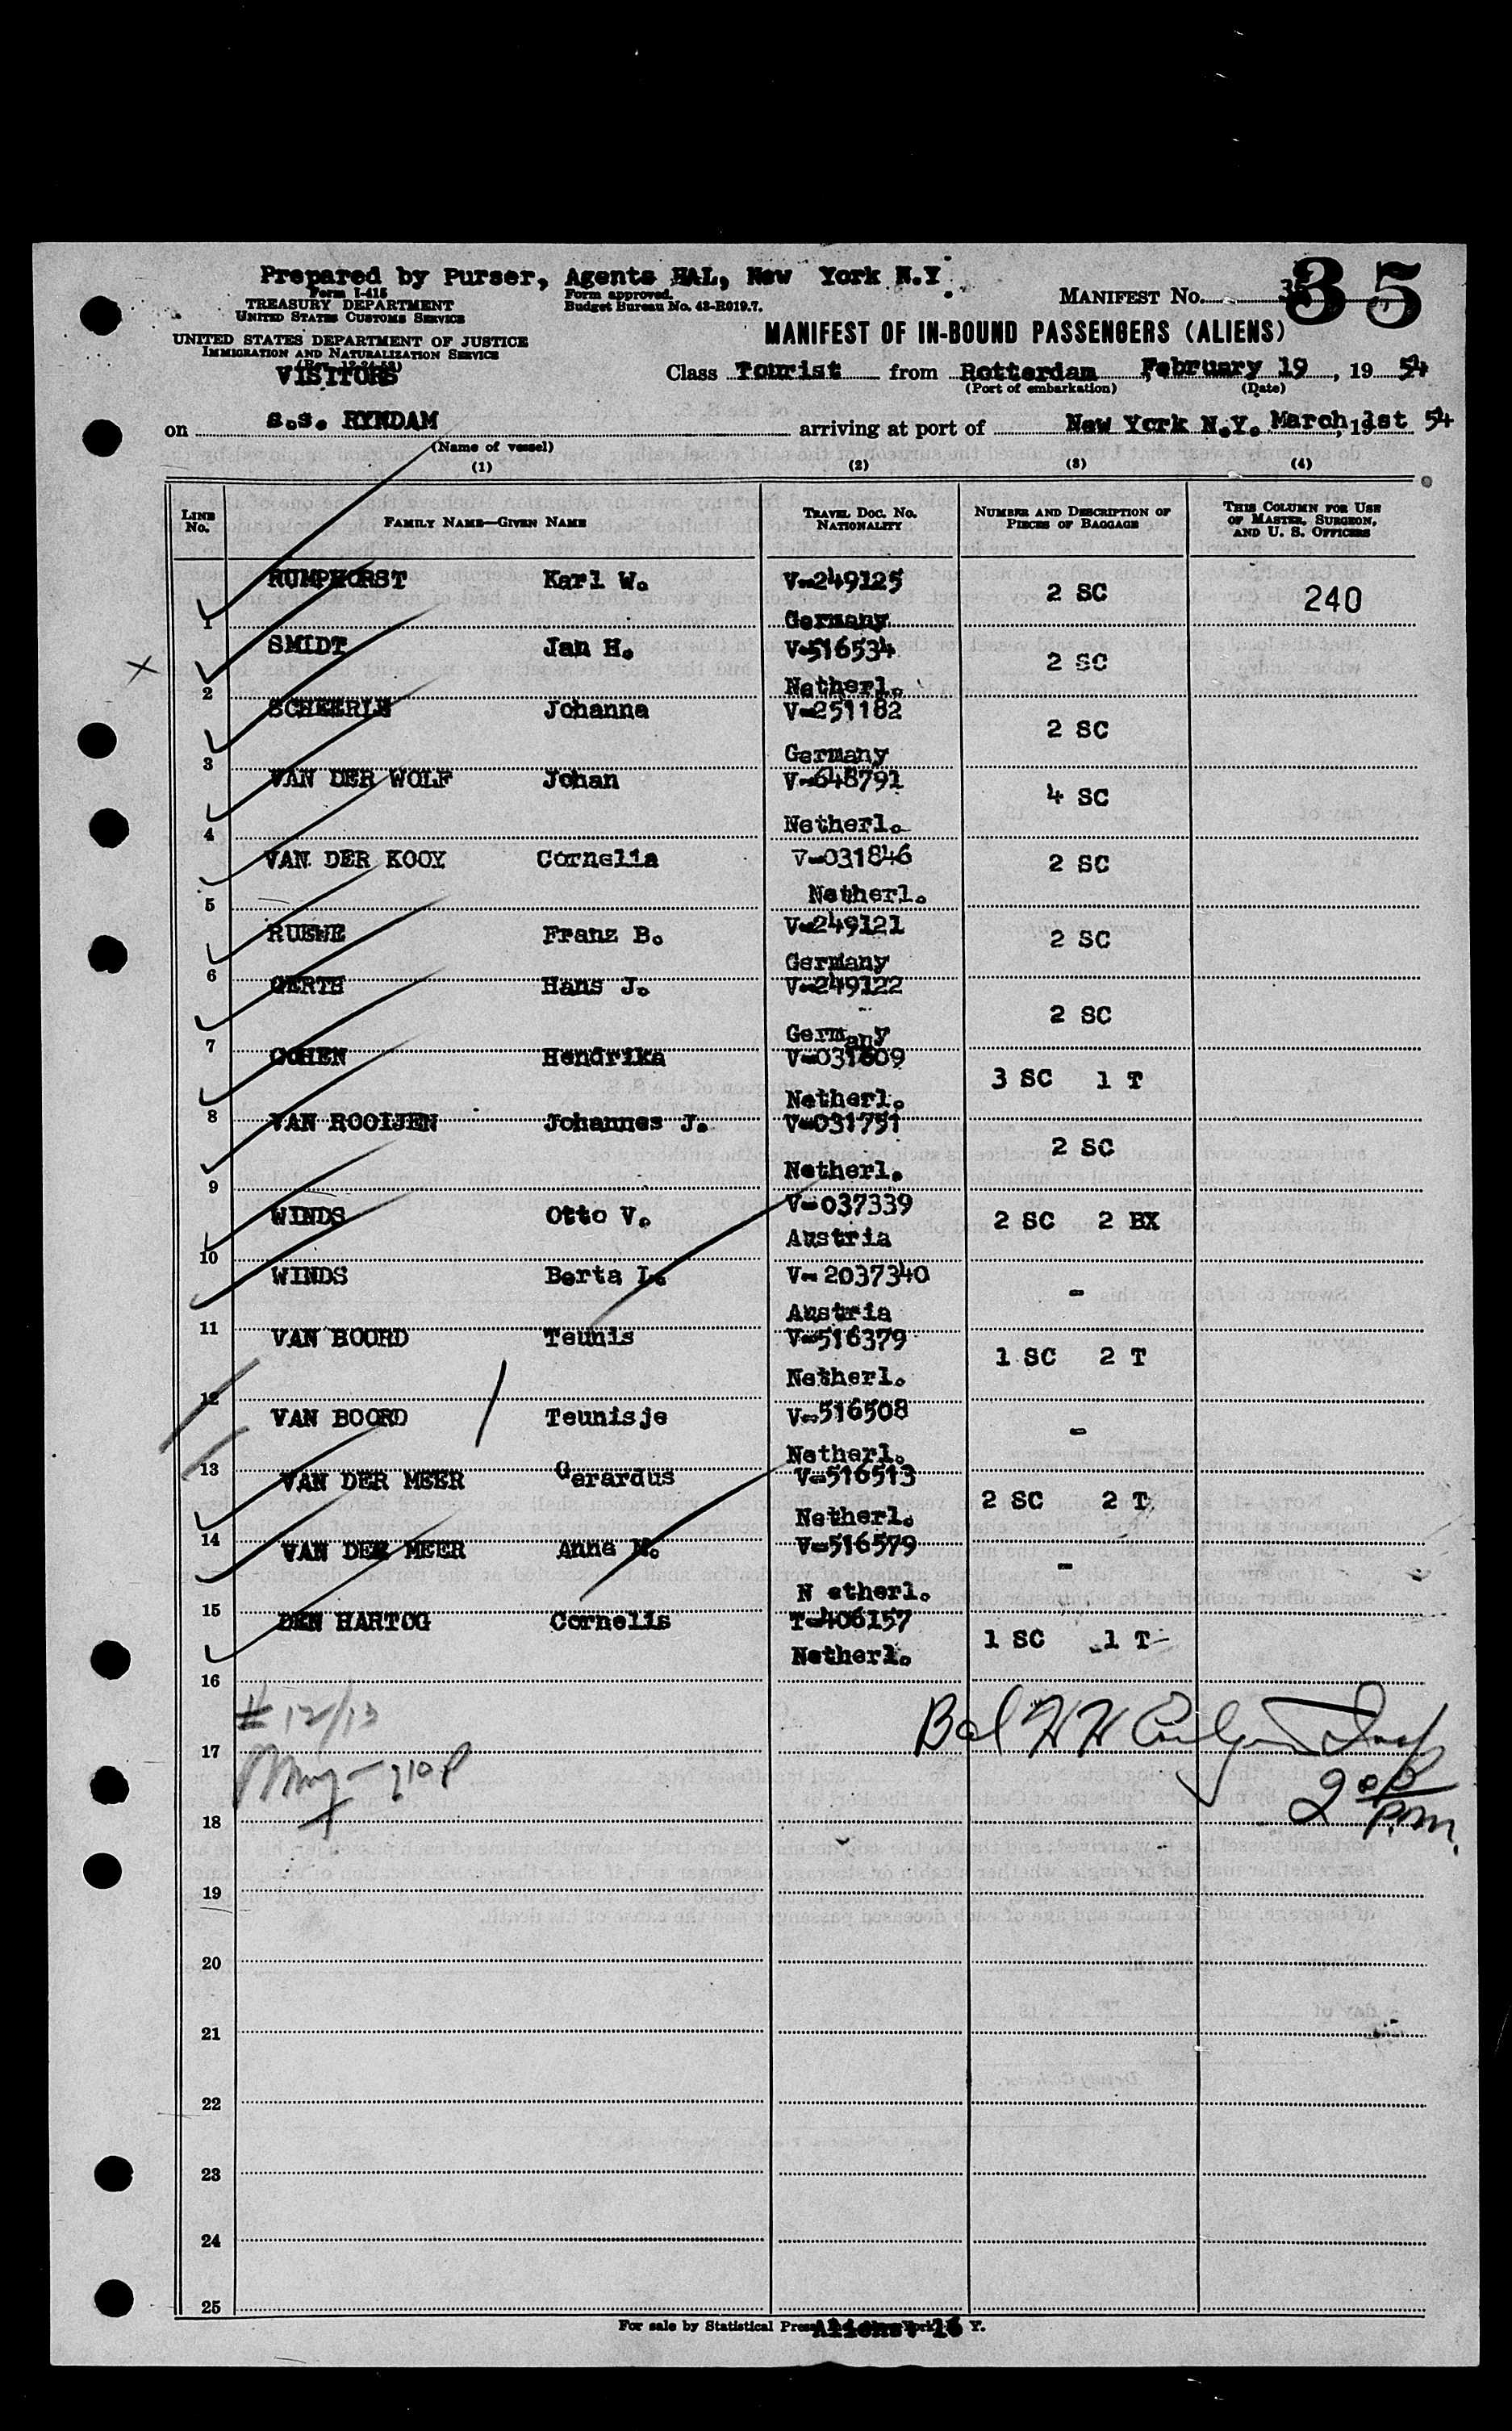 Prepared by Purser, Agents HAL, New York N.Y.
Form I-415
TREASURY DEPARTMENT
UNITED STATES CUSTOMS SERVICE
Form approved.
Budget Bureau No. 43-R019.7.
MANIFEST No. 35
UNITED STATES DEPARTMENT OF JUSTICE
IMMIGRATION AND NATURALIZATION SERVICE
VISITORS
MANIFEST OF IN-BOUND PASSENGERS (ALIENS)
Class Tourist from Rotterdam February 19, 19 54
(Port of embarkation) (Date)
on s.s. RYNDAM arriving at port of New York N.Y. March 1st 54
(Name of vessel)
(1) (2) (3) (4)
LINE No. FAMILY NAME—GIVEN NAME TRAVEL DOC. No. NATIONALITY NUMBER AND DESCRIPTION OF PIECES OF BAGGAGE THIS COLUMN FOR USE OF MASTER, SURGEON, AND U. S. OFFICERS
RUMPHORST Karl W. V-249125 2 SC 240
1 Germany
SMIDT Jan H. V-516534 2 SC
2 Netherl.
SCHEERLE Johanna V-251182 2 SC
3 Germany
VAN DER WOLF Johan V-648791 4 SC
4 Netherl.
VAN DER KOOY Cornelia V-031846 2 SC
5 Netherl.
RUEWE Franz B. V-249121 2 SC
6 Germany
GERTH Hans J. V-249122 2 SC
7 Germany
COHEN Hendrika V-031609 3 SC 1 T
8 Netherl.
VAN ROOIJEN Johannes J. V-031751 2 SC
9 Netherl.
WINDS Otto V. V-037339 2 SC 2 BX
10 Austria
WINDS Berta L. V-2037340 -
11 Austria
VAN BOORD Teunis V-516379 1 SC 2 T
12 Netherl.
VAN BOORD Teunisje V-516508 -
13 Netherl.
VAN DER MEER Gerardus V-516513 2 SC 2 T
14 Netherl.
VAN DER MEER Anna M. V-516579 -
15 N etherl.
DEN HARTOG Cornelis T-406157 1 SC 1 T
16 Netherl.
# 12/13
17
18
2 00 P.M.
19
20
21
22
23
24
25
For sale by Statistical Press Y.
Aliens: 16